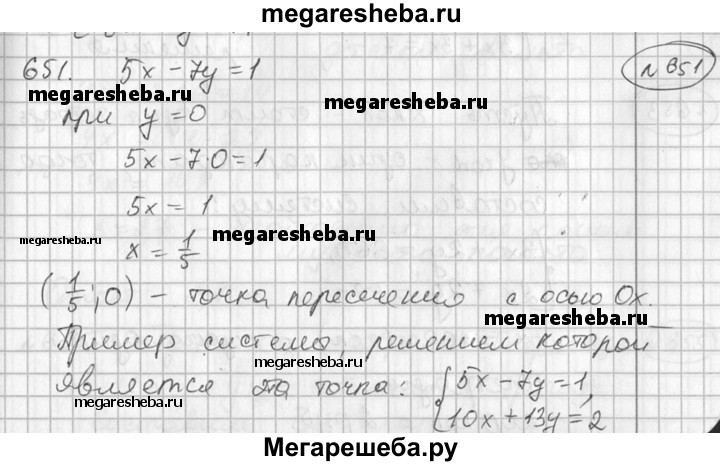 megaresheba.ru
651. 5x - 7y = 1
№ 651
megaresheba.ru
megaresheba.ru
при y = 0
5x - 7·0 = 1
5x = 1
megaresheba.ru
megaresheba.ru
x = 1/5
(1/5; 0) - точка пересечения с осью Ox.
megaresheba.ru
Пример системы, решением которой
megaresheba.ru
является эта точка: { 5x - 7y = 1,
megaresheba.ru
10x + 13y = 2
Мегарешеба.ру